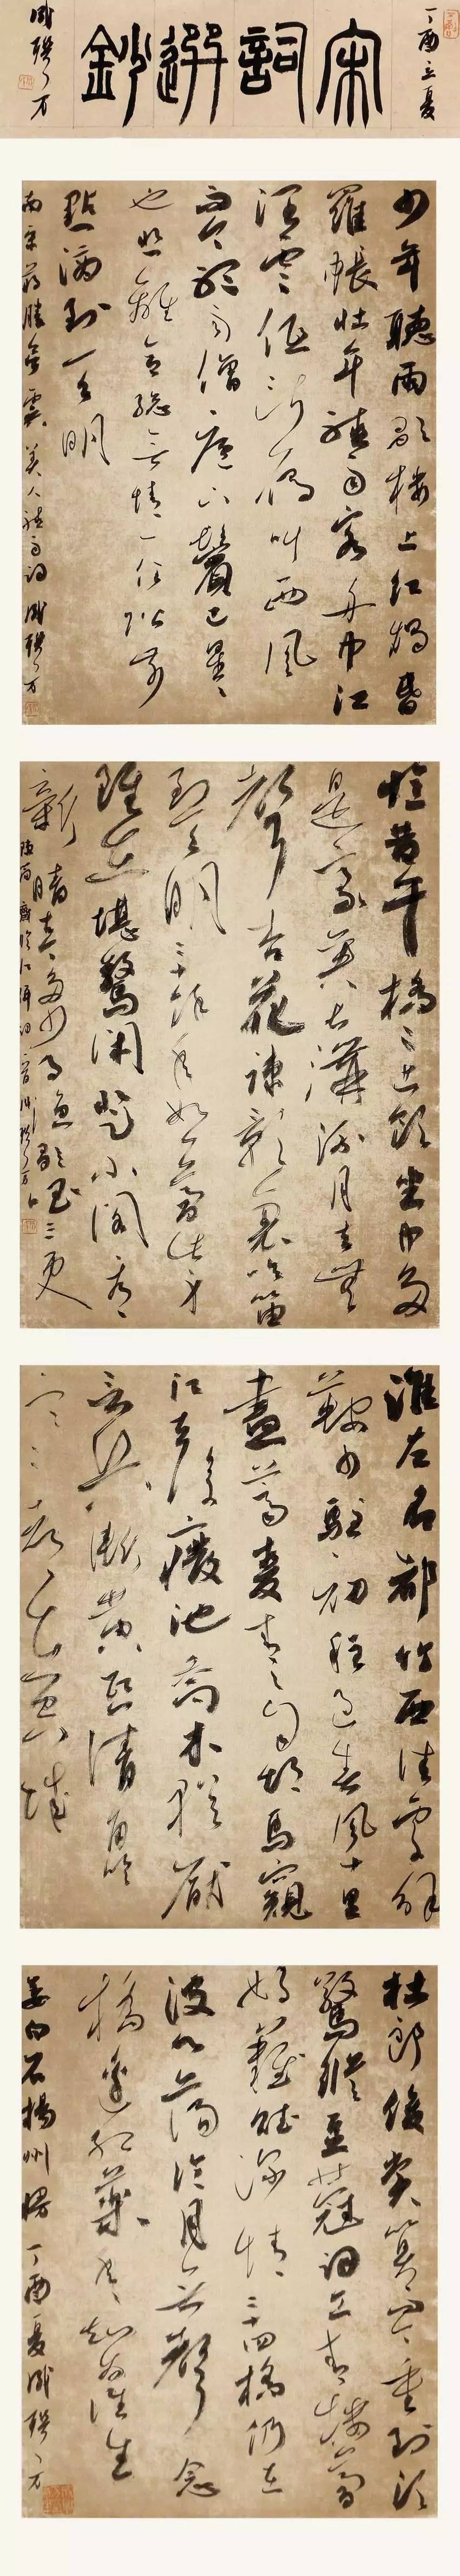 丁酉立夏
宋詞選鈔
少年聽雨歌樓上紅燭昏
羅帳壯年聽雨客舟中江
闊雲低斷雁叫西風
而今聽雨僧廬下鬢已星星
也悲歡離合總無情一任階前
點滴到天明
南宋蔣勝欲虞美人聽雨詞
憶昔午橋橋上飲坐中多
是豪英長溝流月去無
聲杏花疎影裏吹笛
到天明二十餘年如一夢此身
雖在堪驚閑登小閣看
新晴古今多少事漁唱起三更
淮左名都竹西佳處解
鞍少駐初程過春風十里
盡薺麥青青自胡馬窺
江去後廢池喬木猶厭
言兵漸黃昏清角吹
寒都在空城
杜郎俊賞算而今重到須
驚縱豆蔻詞工青樓夢
好難賦深情二十四橋仍在
波心蕩冷月無聲念
橋邊紅藥年年知為誰生
姜白石揚州慢丁酉夏